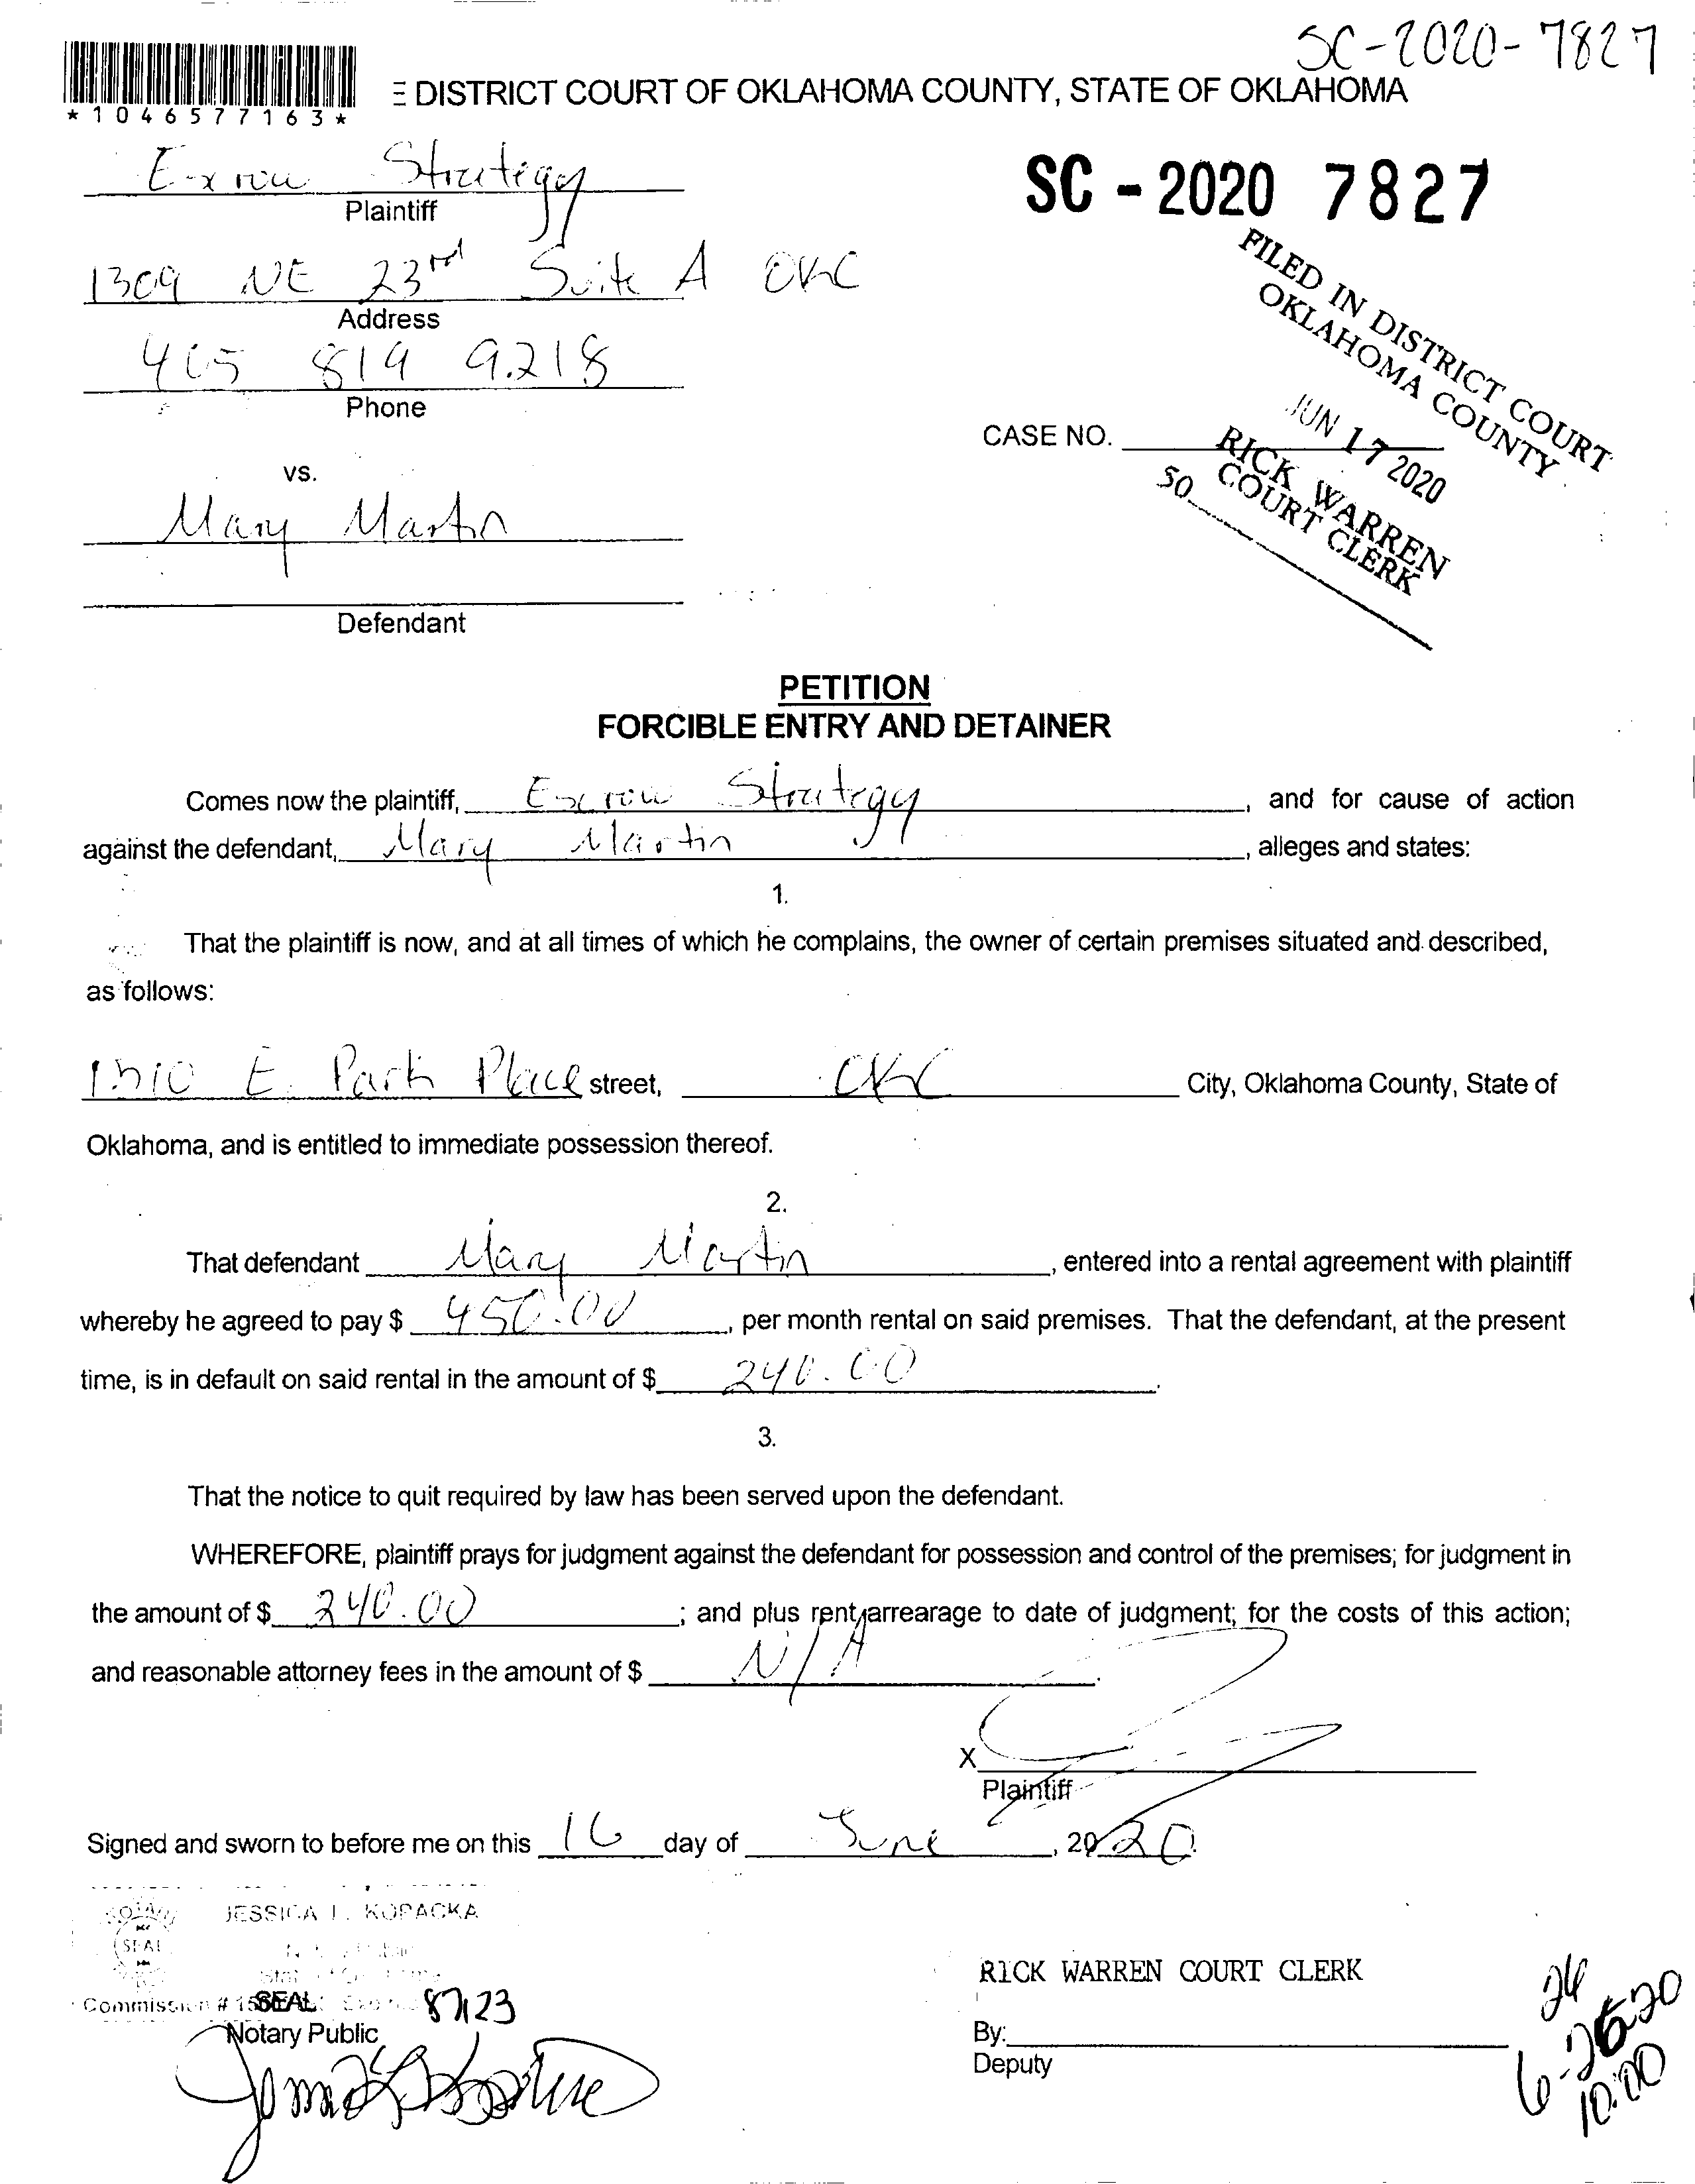 SC-2020-7827
*1046577163*
E DISTRICT COURT OF OKLAHOMA COUNTY, STATE OF OKLAHOMA
Strategy
Plaintiff
SC - 2020 7827
1309 NE 23rd Suite A OKC
Address
405 819 9218
Phone
FILED IN DISTRICT COURT
OKLAHOMA COUNTY
JUN 17 2020
RICK WARREN
COURT CLERK
50
CASE NO.
vs.
Mary Martin
Defendant
PETITION
FORCIBLE ENTRY AND DETAINER
Comes now the plaintiff, Escrow Strategy, and for cause of action
against the defendant, Mary Martin, alleges and states:
1.
That the plaintiff is now, and at all times of which he complains, the owner of certain premises situated and described,
as follows:
E. Park Place street, OKC City, Oklahoma County, State of
Oklahoma, and is entitled to immediate possession thereof.
2.
That defendant Mary Martin, entered into a rental agreement with plaintiff
whereby he agreed to pay $ 450.00, per month rental on said premises. That the defendant, at the present
time, is in default on said rental in the amount of $ 240.00.
3.
That the notice to quit required by law has been served upon the defendant.
WHEREFORE, plaintiff prays for judgment against the defendant for possession and control of the premises; for judgment in
the amount of $ 240.00; and plus rent arrearage to date of judgment; for the costs of this action;
and reasonable attorney fees in the amount of $ N/A.
X
Plaintiff
Signed and sworn to before me on this 16 day of June, 2020.
JESSICA L. KOPACKA
SEAL
Commission #
SEAL
Notary Public
RICK WARREN COURT CLERK
By:
Deputy
26
10:00